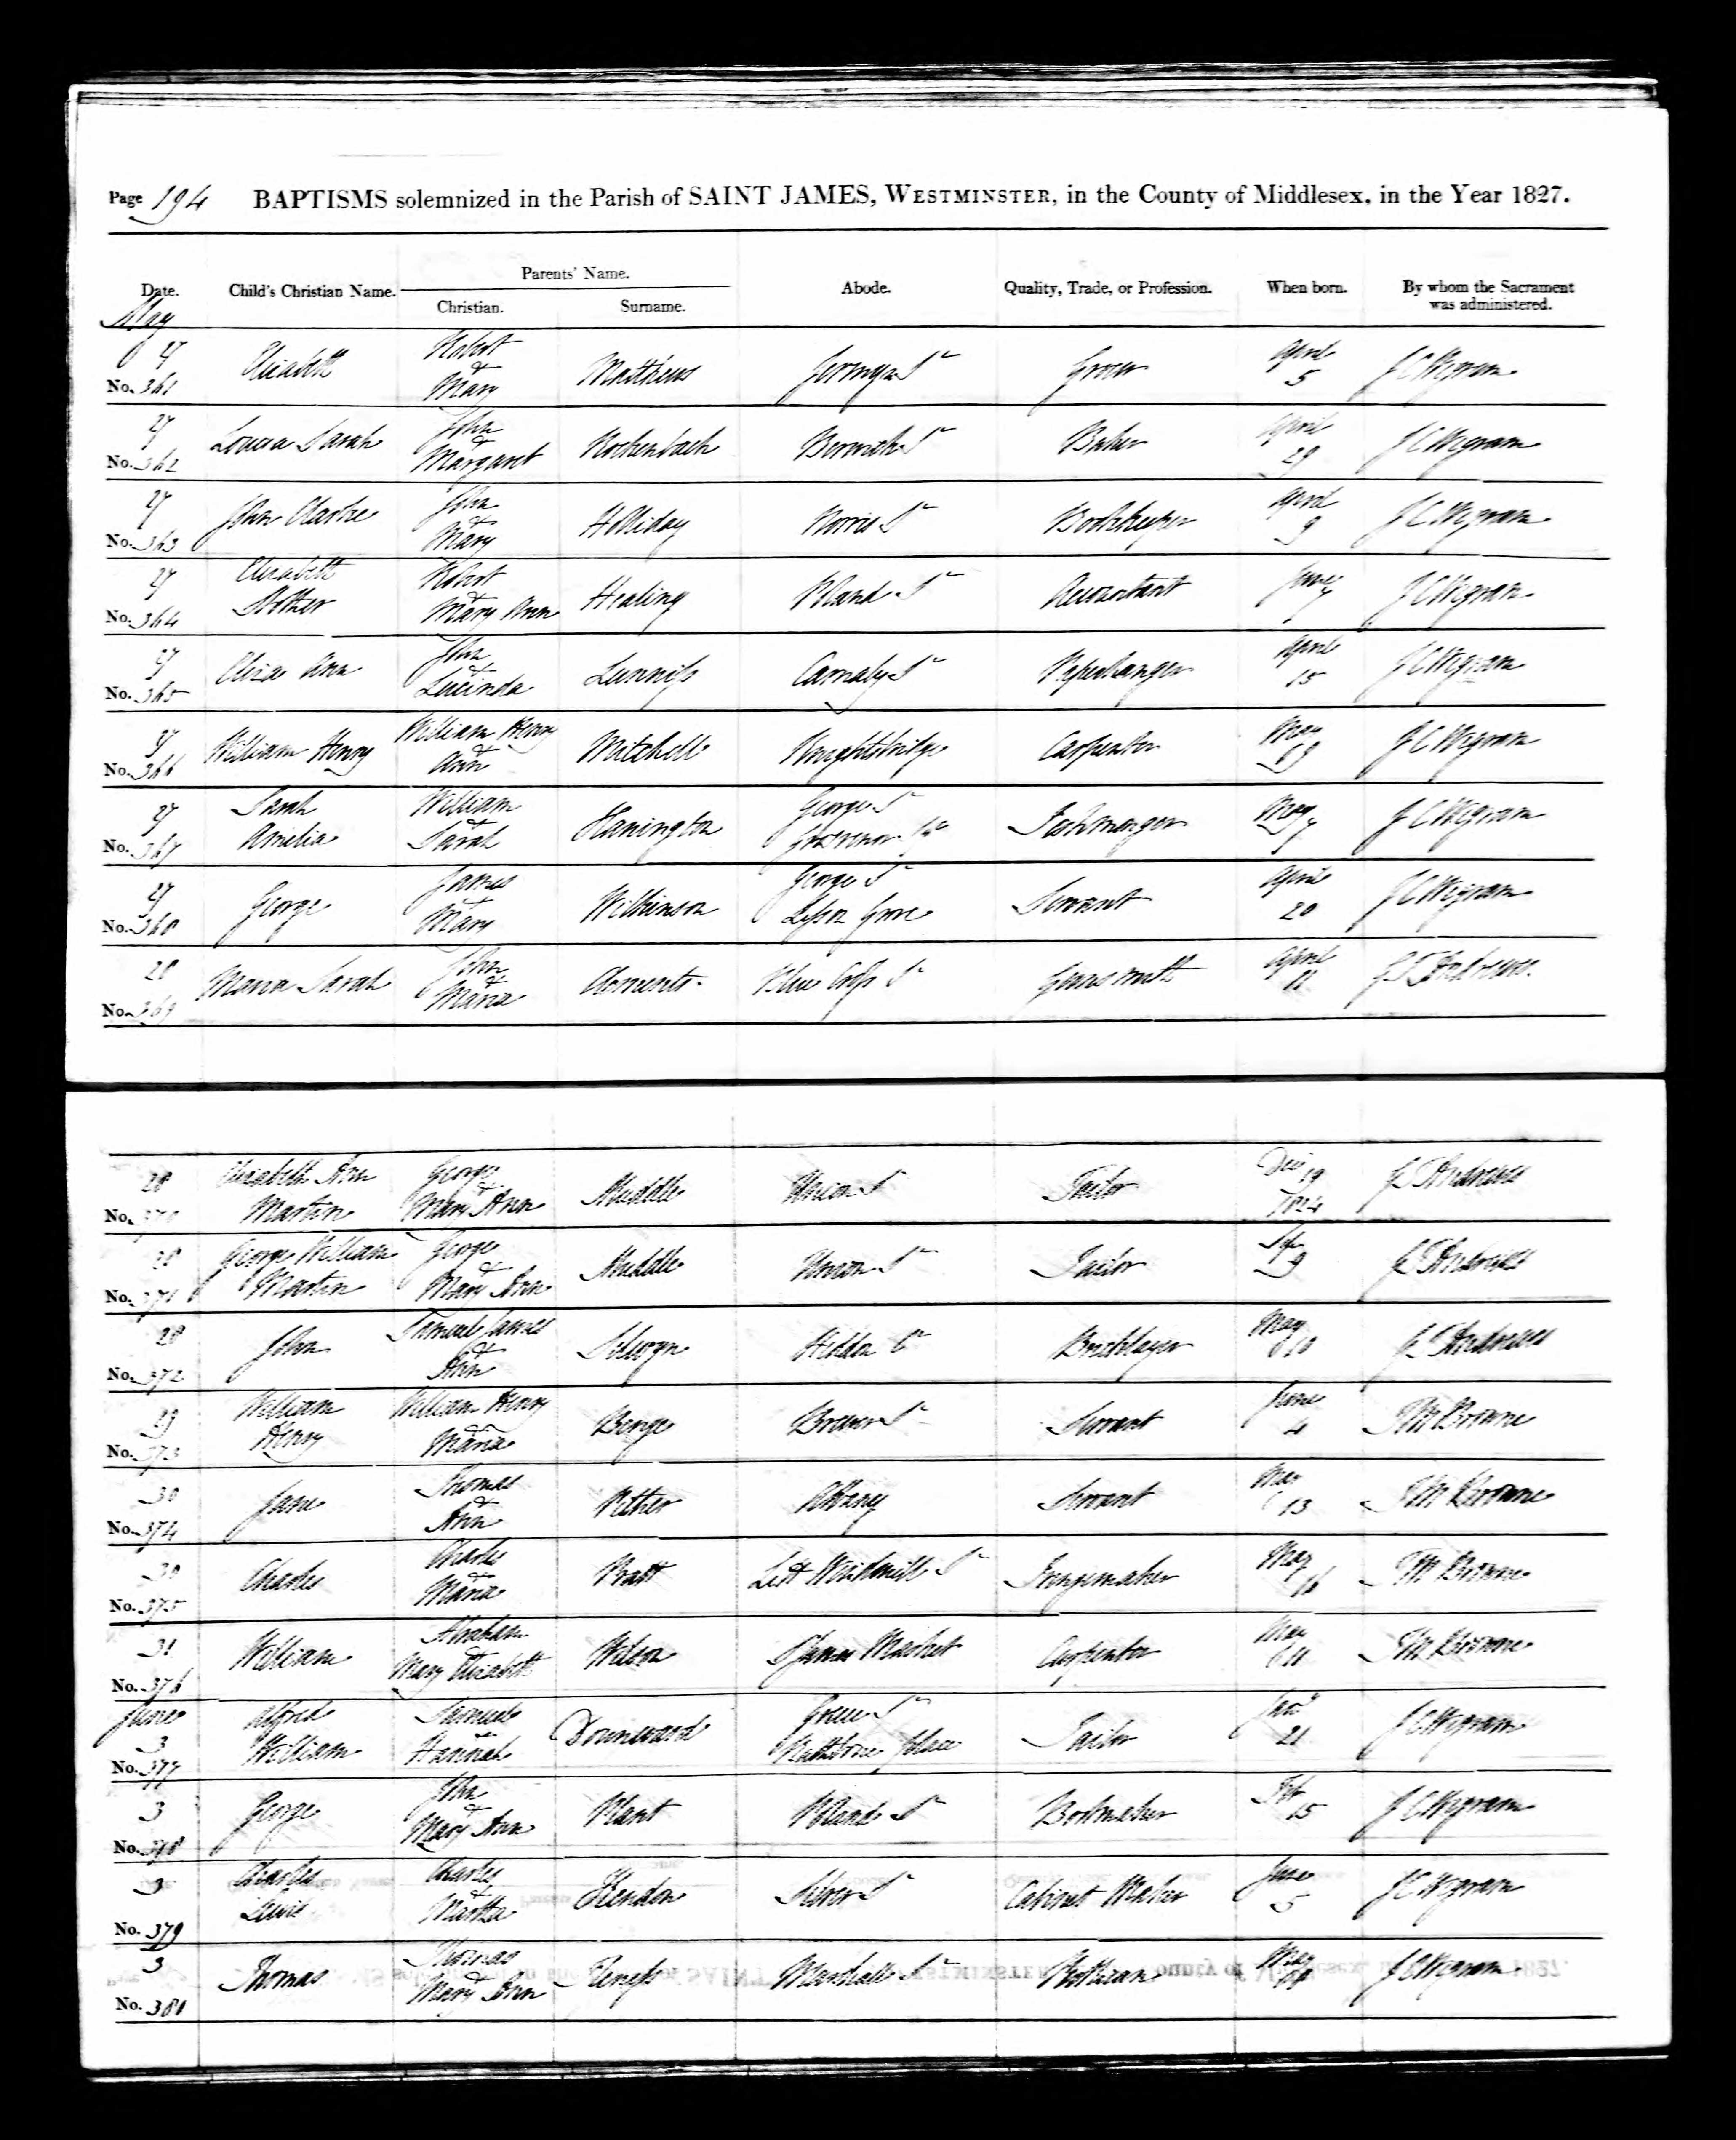 Page 194 BAPTISMS solemnized in the Parish of SAINT JAMES, WESTMINSTER, in the County of Middlesex, in the Year 1827.
Date. Child's Christian Name. Parents' Name. Abode. Quality, Trade, or Profession. When born. By whom the Sacrament was administered.
Christian. Surname.
May
27 No. 361 Elizabeth Robert & Mary Matthews Jermyn St Grocer April 5 J C Wigram
27 No. 362 Louisa Sarah John & Margaret Rockenbach Berwick St Baker April 29 J C Wigram
27 No. 363 John Clarke John & Mary Holliday Norris St Bookkeeper April 9 J C Wigram
27 No. 364 Elizabeth Robert & Mary Ann Healing Bland St Accountant J C Wigram
27 No. 365 Eliza Ann John & Lucinda Carnaby St Paperhanger April 15 J C Wigram
27 No. 366 William Henry William Henry & Ann Mitchell Knightsbridge Carpenter May J C Wigram
27 No. 367 Sarah Amelia William & Sarah Hanington George St Grosvenor Sqe Fishmonger May 7 J C Wigram
27 No. 368 George James & Mary Wilkinson George St Lisson Grove Servant April 20 J C Wigram
28 No. 369 Maria Sarah John & Maria Clements April 11 G T Andrewes
28 No. 370 Elizabeth Ann Martin George & Mary Ann Muddle Union St Tailor Dec 19 1824 G T Andrewes
28 No. 371 George William Martin George & Mary Ann Muddle Union St Tailor G T Andrewes
28 No. 372 John Samuel James & Ann Selwyn Heddon Ct Bricklayer May 10 G T Andrewes
29 No. 373 William Henry William Henry & Maria Berge Brewer St Servant June 4 T M Browne
30 No. 374 Jane Thomas & Ann Pither Albany Servant May 13 T M Browne
30 No. 375 Charles Charles & Maria Pratt Litt Windmill St Fringemaker May 16 T M Browne
31 No. 376 William Abraham Mary Elizabeth Wilson St James Market Carpenter May 11 T M Browne
June
3 No. 377 Alfred William Samuel & Hannah Dounward Rathbone Place Tailor Jany 21 J C Wigram
3 No. 378 George John & Mary Ann Plant Poland St Bootmaker Feb 15 J C Wigram
3 No. 379 Charles Lewis Charles & Martha Hendon Silver St Cabinet Maker June 5 J C Wigram
3 No. 380 Thomas Thomas & Mary Ann Marshall St May J C Wigram